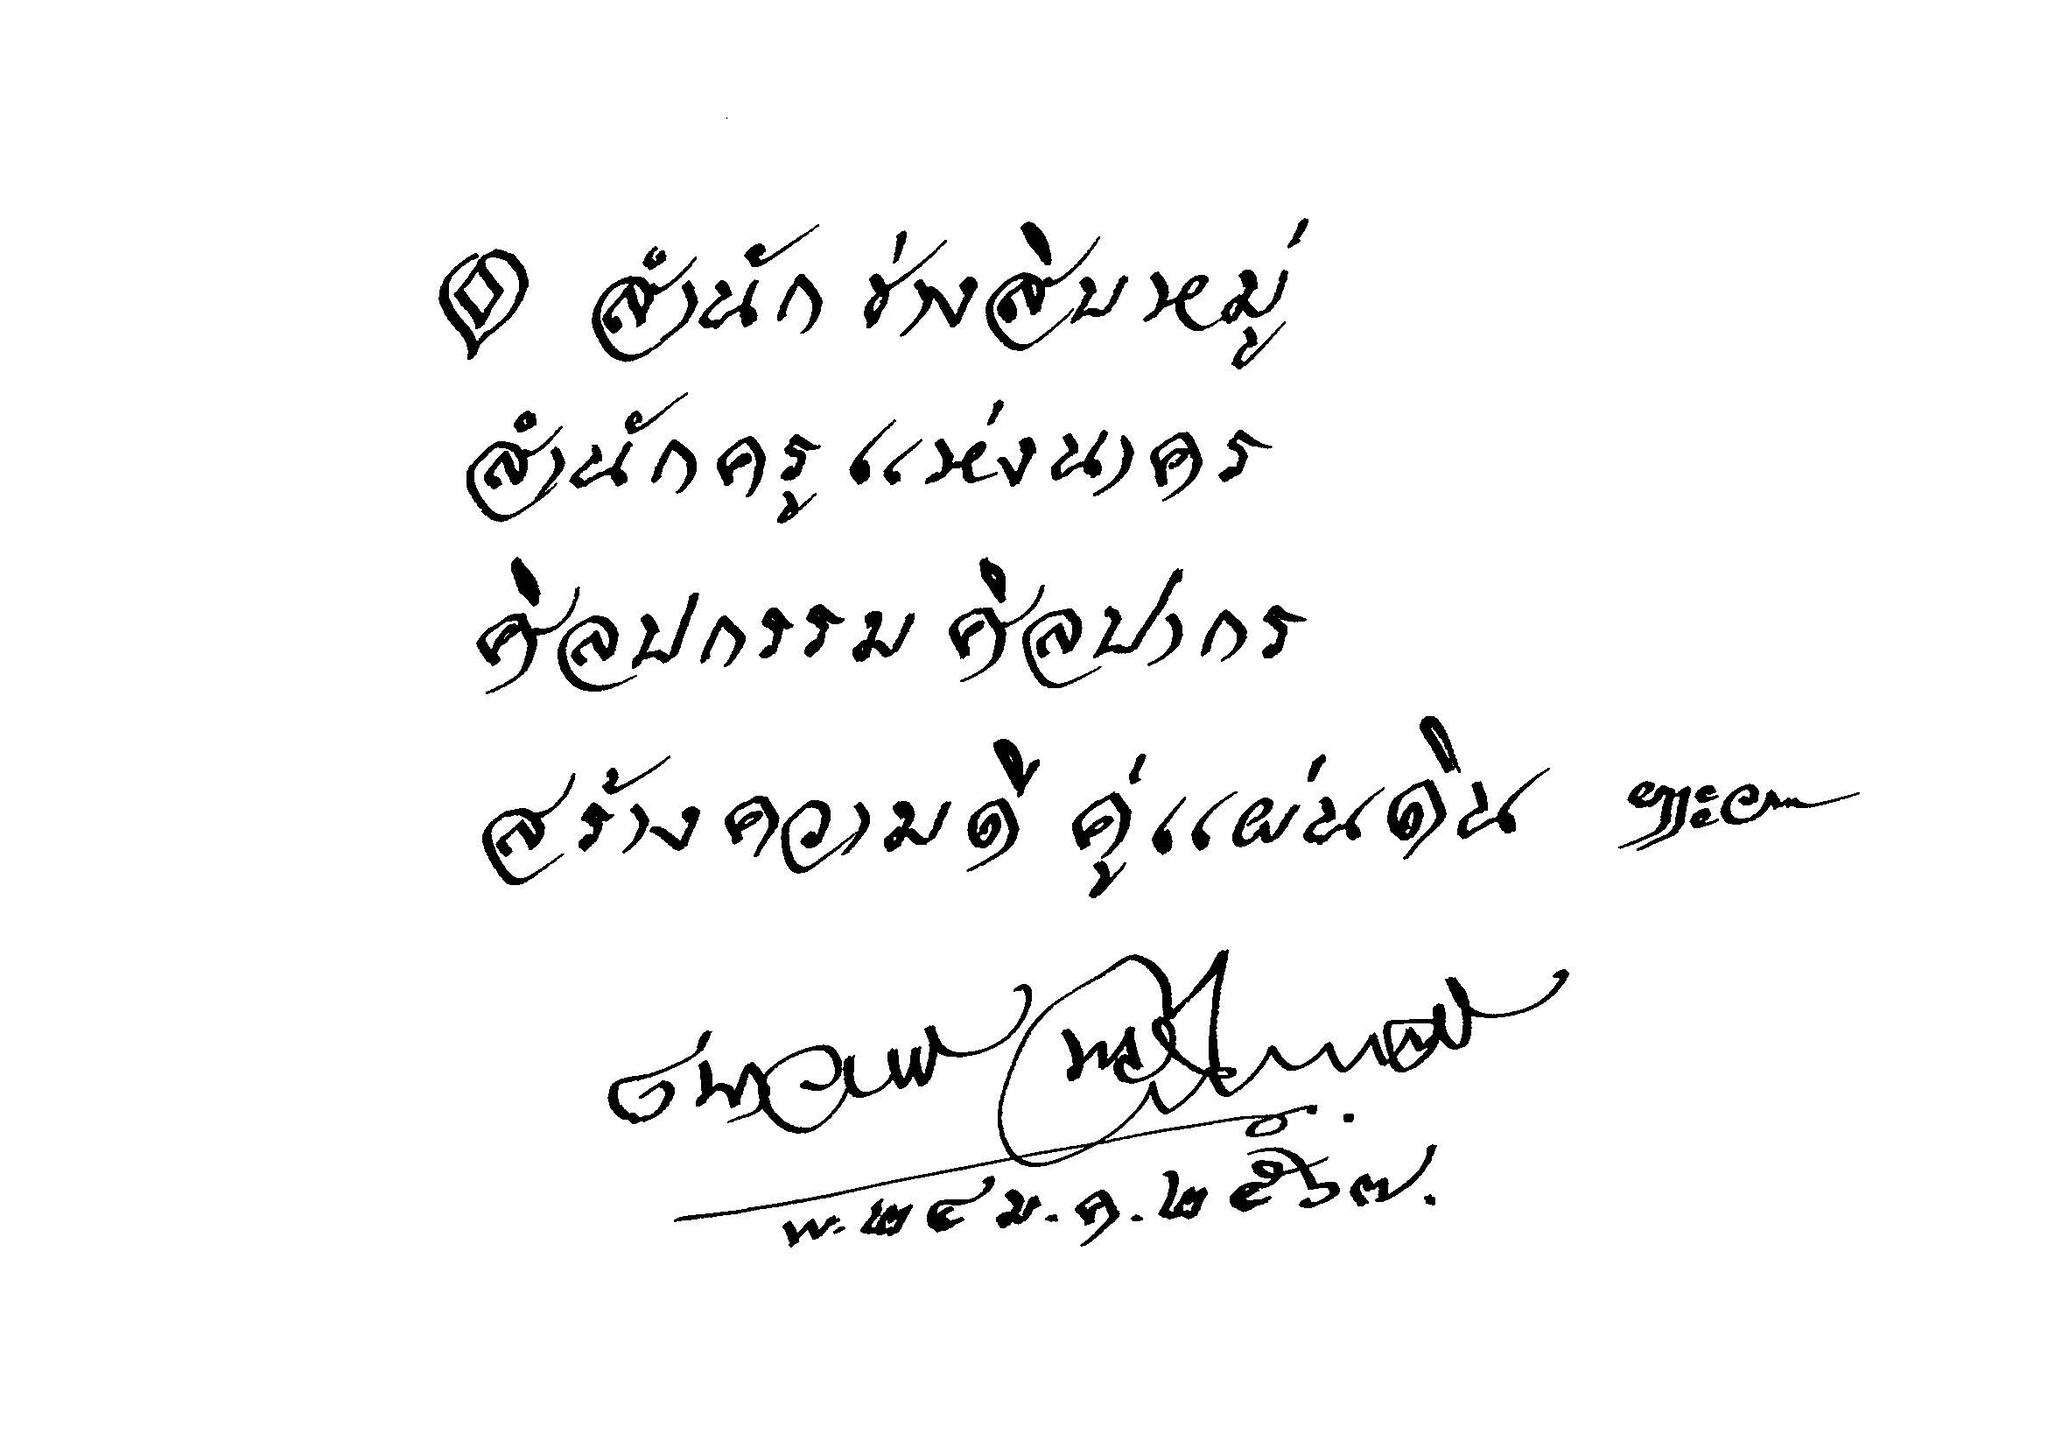 ๏ สำนักช่างสิบหมู่
สำนักครูแห่งนาคร
ศิลปกรรม ศิลปากร
สร้างความดี คู่แผ่นดิน
พ. ๒๔ ม.ค. ๒๕๖๗.